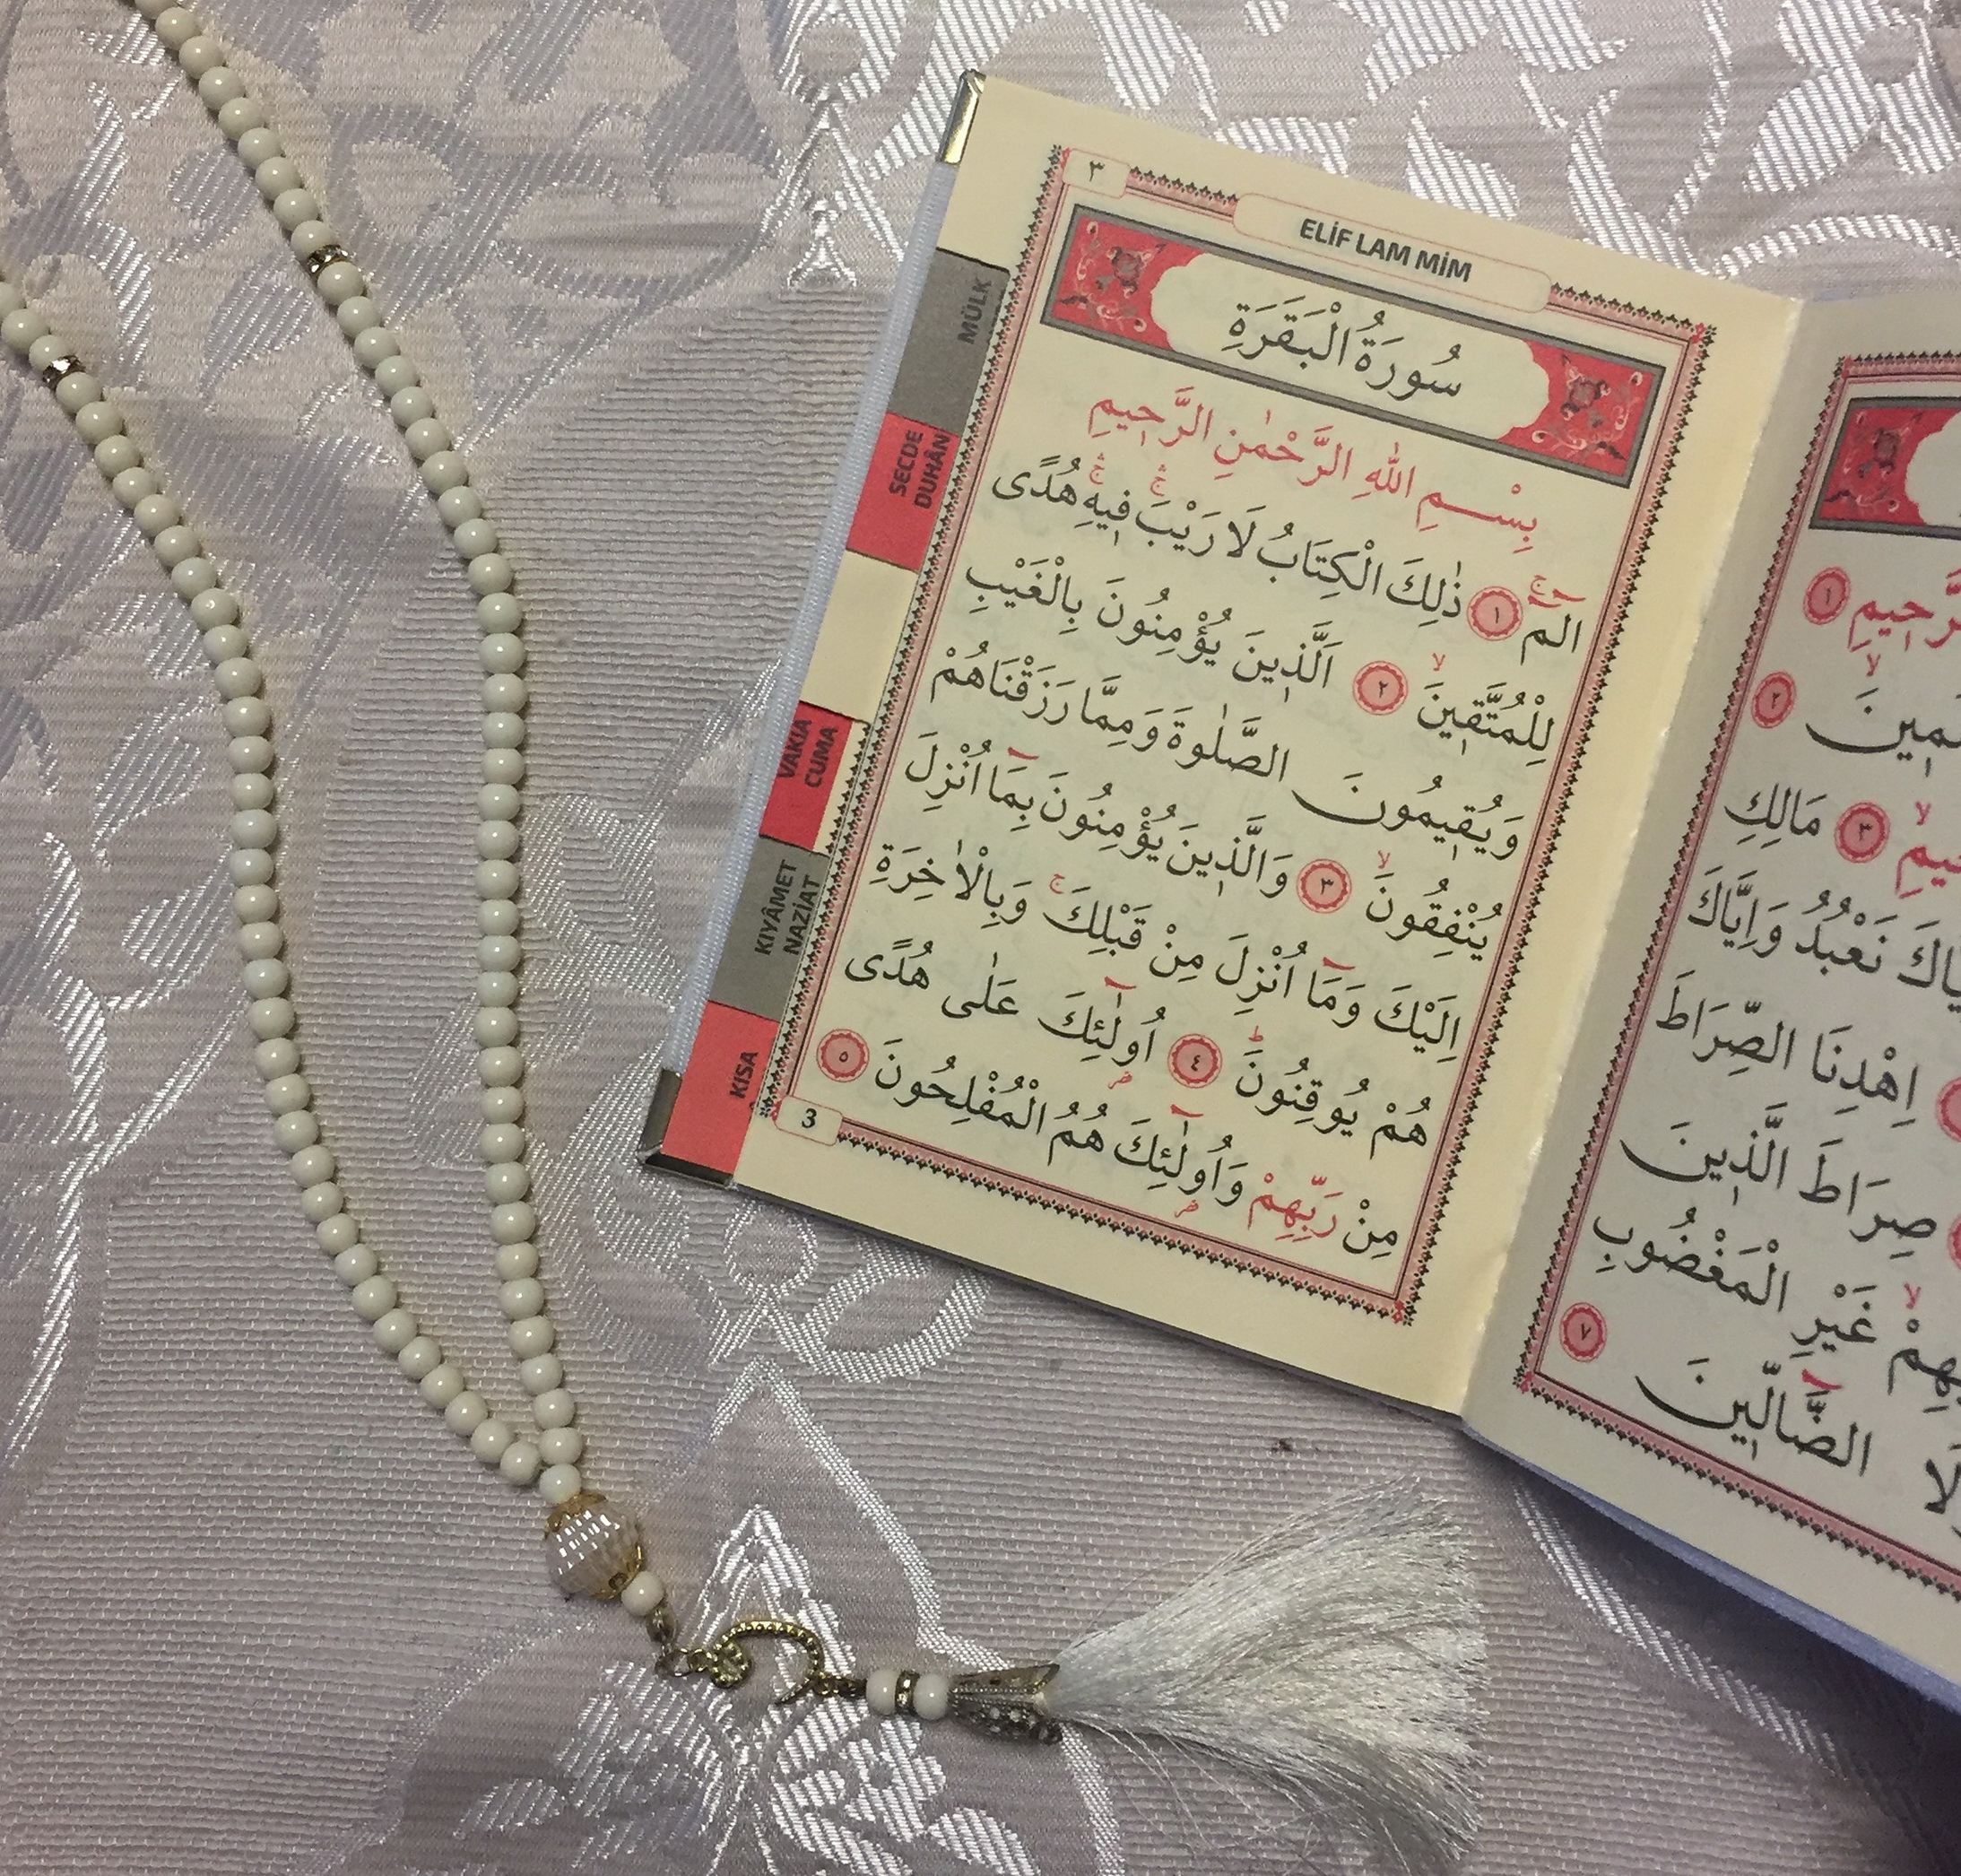 ٣
ELİF LAM MİM
سُورَةُ الْبَقَرَةِ
بِسْمِ اللهِ الرَّحْمٰنِ الرَّحِيمِ
الٓمٓ ١ ذٰلِكَ الْكِتَابُ لَا رَيْبَ فِيهِ هُدًى
لِلْمُتَّقِينَ ٢ اَلَّذِينَ يُؤْمِنُونَ بِالْغَيْبِ
وَيُقِيمُونَ الصَّلٰوةَ وَمِمَّا رَزَقْنَاهُمْ
يُنْفِقُونَ ٣ وَالَّذِينَ يُؤْمِنُونَ بِمَٓا اُنْزِلَ
اِلَيْكَ وَمَٓا اُنْزِلَ مِنْ قَبْلِكَ وَبِالْاٰخِرَةِ
هُمْ يُوقِنُونَ ٤ اُولٰٓئِكَ عَلٰى هُدًى
مِنْ رَبِّهِمْ وَاُولٰٓئِكَ هُمُ الْمُفْلِحُونَ ٥
3
MÜLK
SECDE
DUHÂN
VAKIA
CUMA
KIYÂMET
NAZİAT
KISA
١
٢
٣ مَالِكِ
نَعْبُدُ وَاِيَّاكَ
اِهْدِنَا الصِّرَاطَ
صِرَاطَ الَّذِينَ
غَيْرِ الْمَغْضُوبِ
الضَّٓالِّينَ ٧